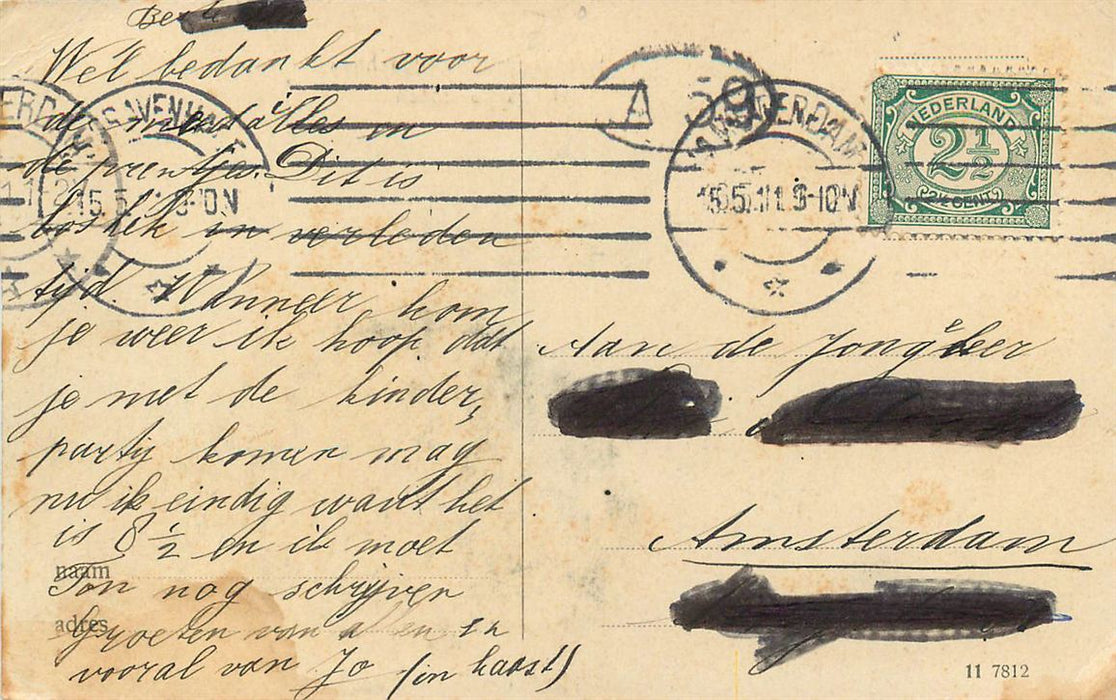 Wel bedankt voor
de in
de prentjes. Dit is
in verleden
tijd. Wanneer kom
je weer ik hoop dat
je met de kinder,
partij komen mag
nu ik eindig want het
is 8 1/2 en ik moet
naam
Ton nog schrijven
adres
Groeten van allen en
vooral van Jo (in haast)
'S-GRAVENHAGE
15.5.11 9-10N
A 59
AMSTERDAM
15.5.11.9-10N
NEDERLAND
2 1/2
(2 1/2 CENT)
Aan de Jongeheer
Amsterdam
11 7812